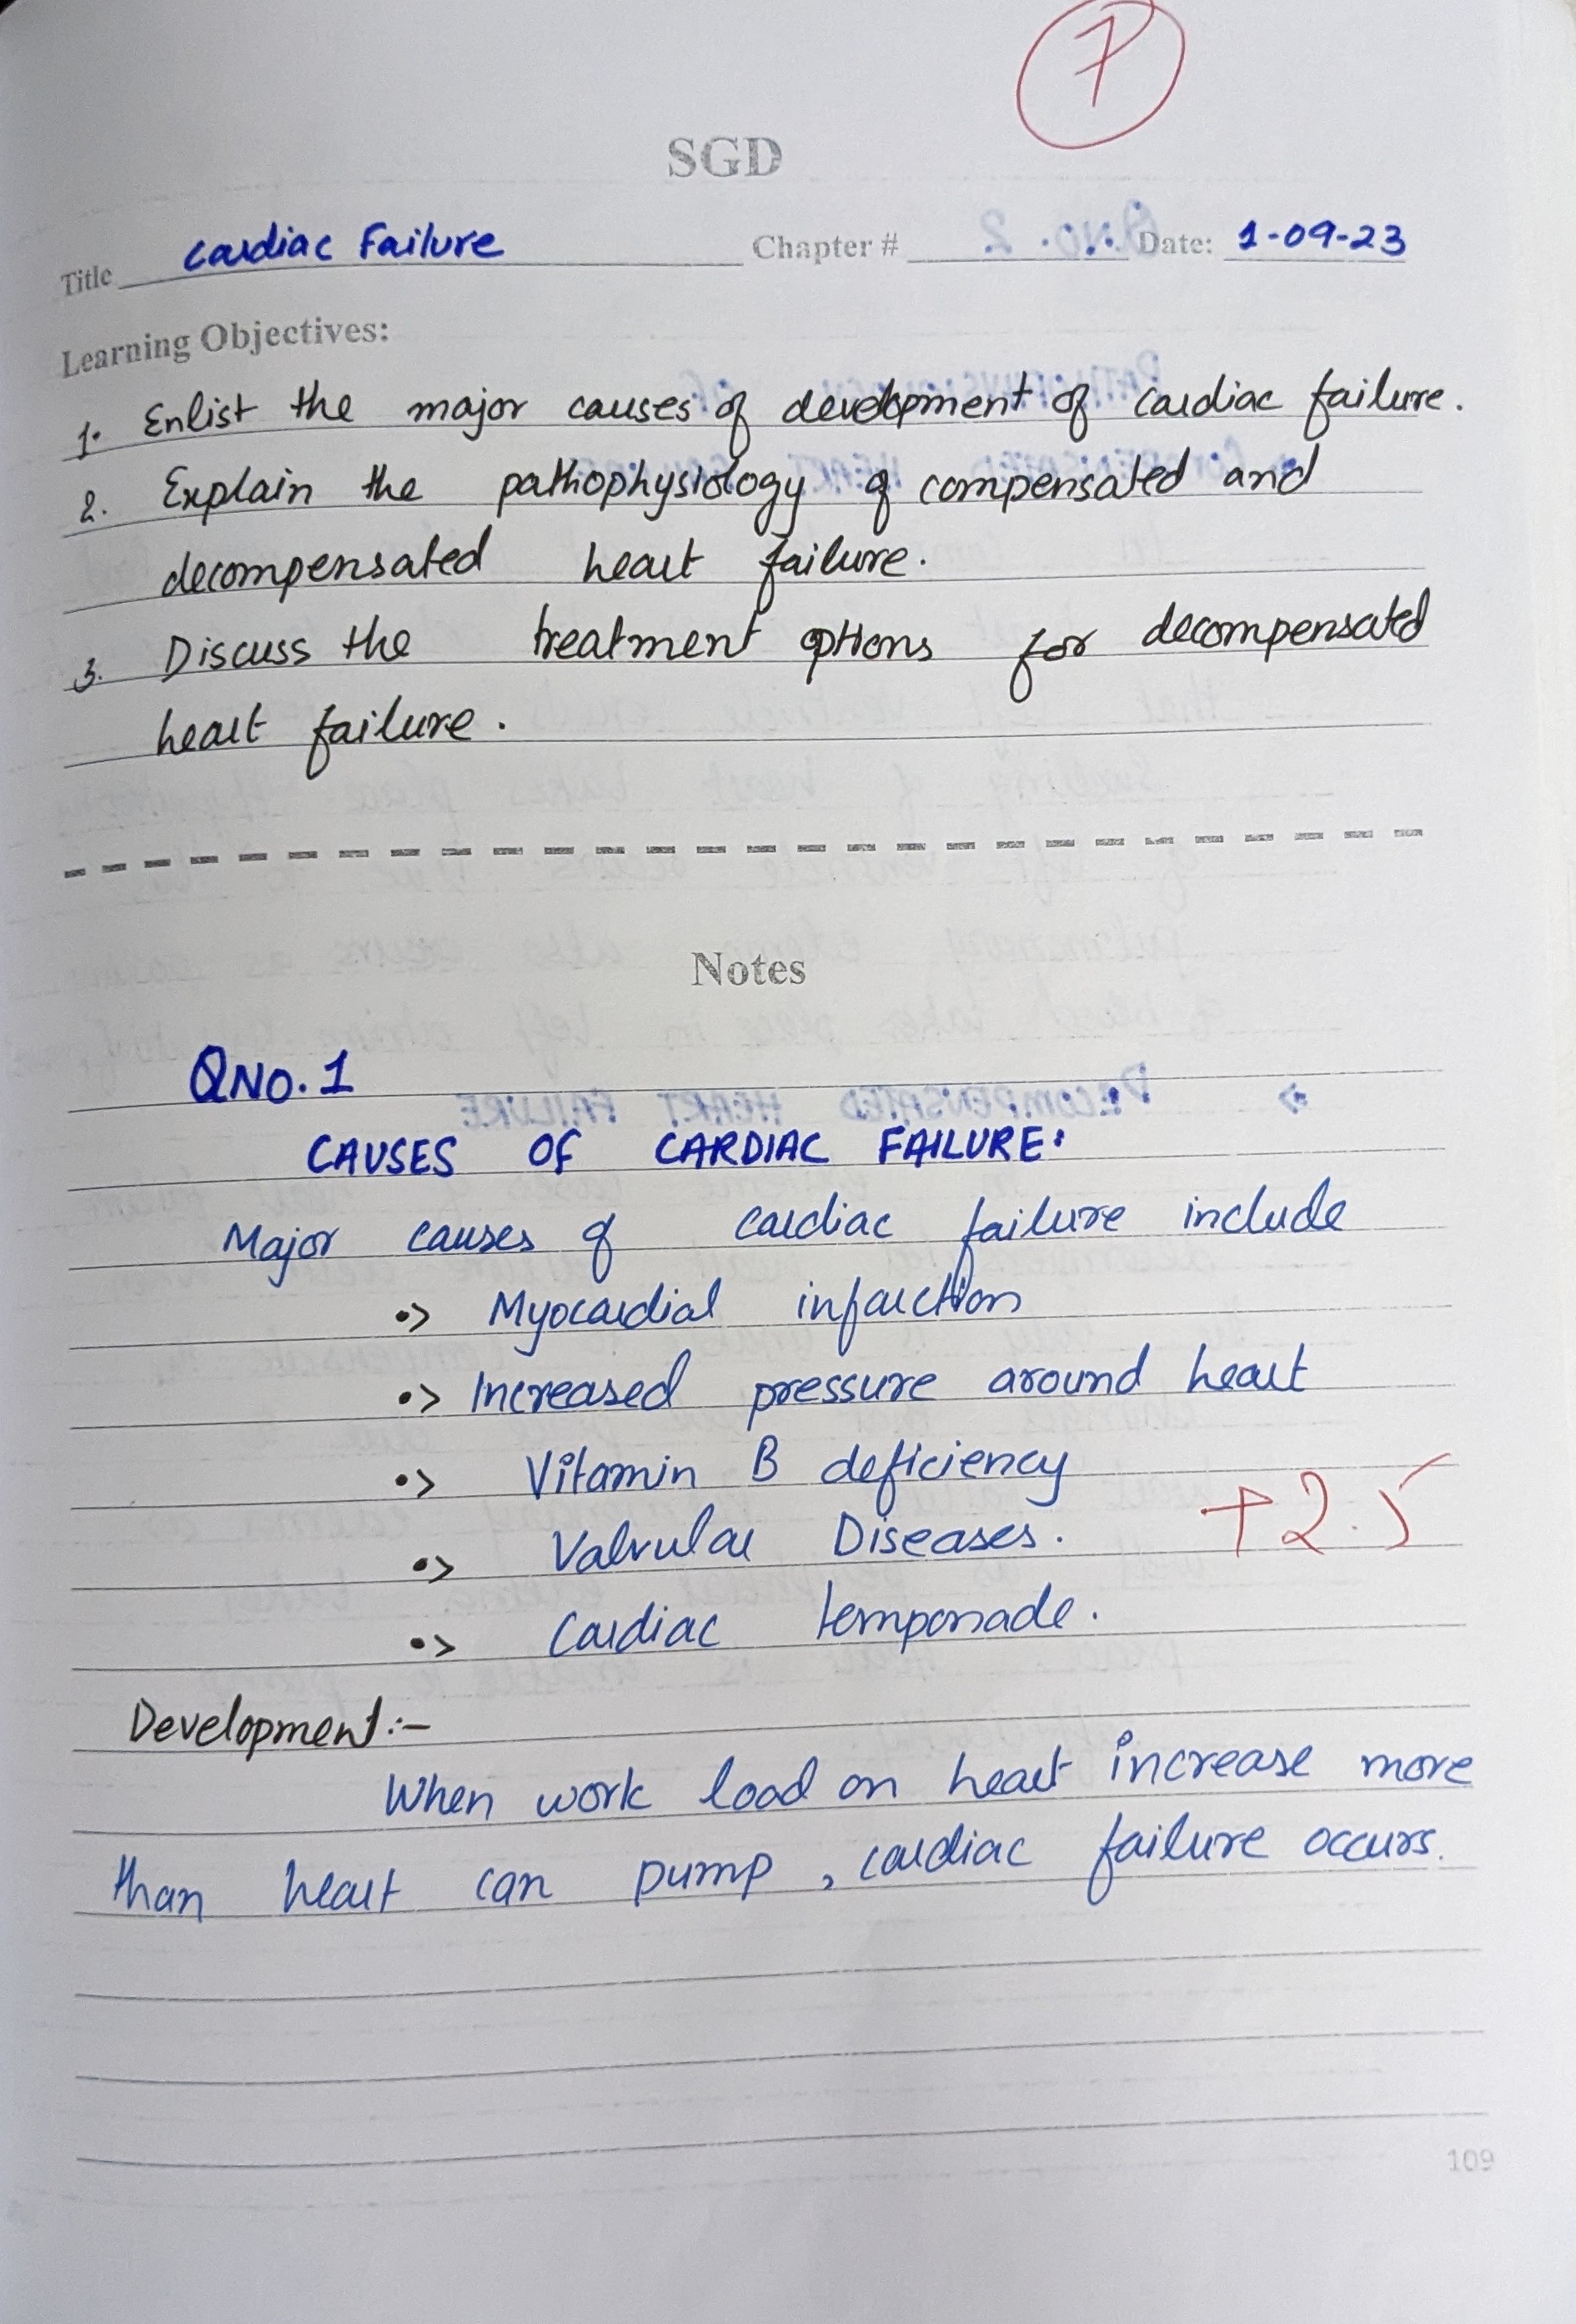 7
SGD
Title Cardiac Failure Chapter # Date: 1-09-23
Learning Objectives:
1. Enlist the major causes of development of cardiac failure.
2. Explain the pathophysiology of compensated and
decompensated heart failure.
3. Discuss the treatment options for decompensated
heart failure.
Notes
QNO. 1
CAUSES OF CARDIAC FAILURE:
Major causes of cardiac failure include
•> Myocardial infarction
•> Increased pressure around heart
•> Vitamin B deficiency
•> Valvular Diseases. +2.5
•> Cardiac temponade.
Development:-
When work load on heart increase more
than heart can pump, cardiac failure occurs.
109